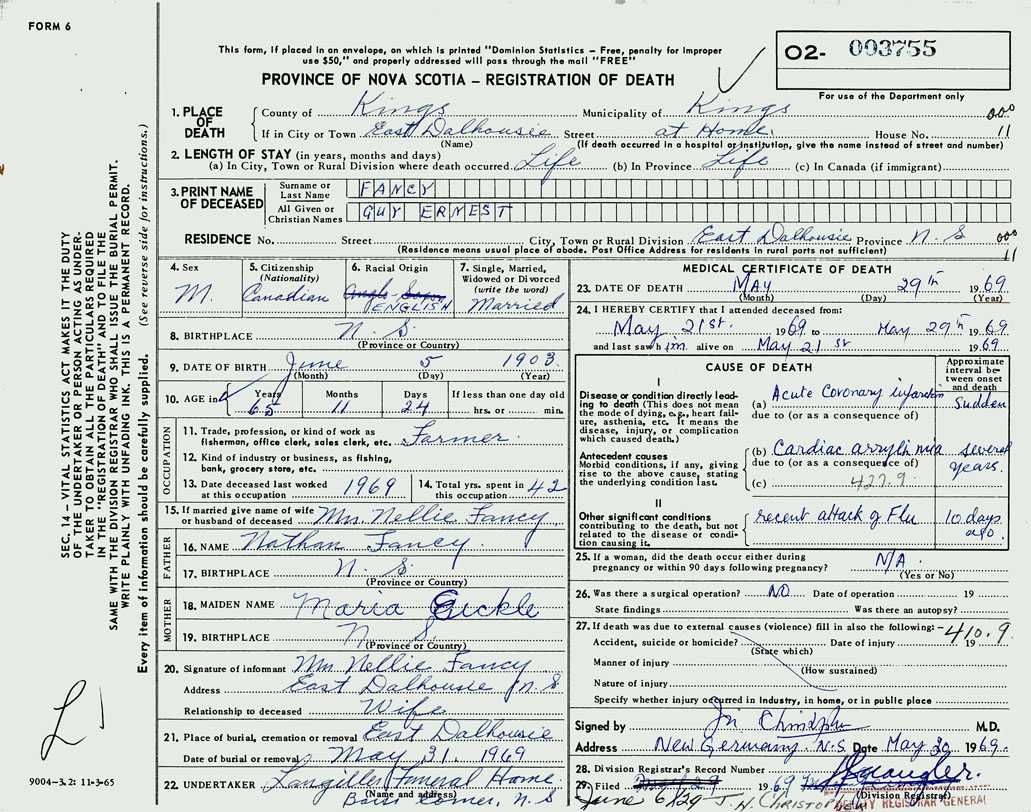 FORM 6
This form, if placed in an envelope, on which is printed "Dominion Statistics – Free, penalty for improper
use $50," and properly addressed will pass through the mail "FREE"
PROVINCE OF NOVA SCOTIA – REGISTRATION OF DEATH
02- 003755
For use of the Department only
SEC. 14 – VITAL STATISTICS ACT MAKES IT THE DUTY
OF THE UNDERTAKER OR PERSON ACTING AS UNDER-
TAKER TO OBTAIN ALL THE PARTICULARS REQUIRED
IN THE "REGISTRATION OF DEATH" AND TO FILE THE
SAME WITH THE DIVISION REGISTRAR WHO SHALL ISSUE THE BURIAL PERMIT.
WRITE PLAINLY WITH UNFADING INK. THIS IS A PERMANENT RECORD.
Every item of information should be carefully supplied. (See reverse side for instructions.)
1. PLACE OF DEATH
County of Kings Municipality of Kings 000
If in City or Town East Dalhousie Street at Home. House No. 11
(Name) (If death occurred in a hospital or institution, give the name instead of street and number)
2. LENGTH OF STAY (in years, months and days)
(a) In City, Town or Rural Division where death occurred Life (b) In Province Life (c) In Canada (if immigrant)
3. PRINT NAME OF DECEASED
Surname or Last Name FANCY
All Given or Christian Names GUY ERNEST
RESIDENCE No. Street City, Town or Rural Division East Dalhousie Province N.S 000
(Residence means usual place of abode. Post Office Address for residents in rural parts not sufficient) 11
4. Sex M.
5. Citizenship (Nationality) Canadian
6. Racial Origin Anglo Saxon ENGLISH
7. Single, Married, Widowed or Divorced (write the word) Married
8. BIRTHPLACE N. S.
(Province or Country)
9. DATE OF BIRTH June 5 1903
(Month) (Day) (Year)
10. AGE in Years 65 Months 11 Days 24 If less than one day old hrs. or min.
OCCUPATION
11. Trade, profession, or kind of work as
fisherman, office clerk, sales clerk, etc. Farmer.
12. Kind of industry or business, as fishing,
bank, grocery store, etc.
13. Date deceased last worked at this occupation 1969
14. Total yrs. spent in this occupation 42
15. If married give name of wife or husband of deceased Mrs. Nellie Fancy
FATHER
16. NAME Nathan Fancy.
17. BIRTHPLACE N. S.
(Province or Country)
MOTHER
18. MAIDEN NAME Maria
19. BIRTHPLACE N. S.
(Province or Country)
20. Signature of informant Mrs Nellie Fancy
Address East Dalhousie N.S
Relationship to deceased Wife
21. Place of burial, cremation or removal East Dalhousie
Date of burial or removal May 31. 1969
22. UNDERTAKER Langilles Funeral Home.
(Name and address) Corner, N.S
9004-3.2: 11-3-65
MEDICAL CERTIFICATE OF DEATH
23. DATE OF DEATH MAY 29th 1969
(Month) (Day) (Year)
24. I HEREBY CERTIFY that I attended deceased from:
May 21st. 1969 to May 29th 1969
and last saw him alive on May 21st 1969
CAUSE OF DEATH
Approximate interval between onset and death
I
Disease or condition directly leading to death (This does not mean the mode of dying, e.g., heart failure, asthenia, etc. It means the disease, injury, or complication which caused death.)
(a) Acute Coronary infarction Sudden
due to (or as a consequence of)
Antecedent causes
Morbid conditions, if any, giving rise to the above cause, stating the underlying condition last.
(b) Cardiac arrythmia several years.
due to (or as a consequence of)
(c) 427.9
II
Other significant conditions contributing to the death, but not related to the disease or condition causing it.
recent attack of Flu 10 days ago.
25. If a woman, did the death occur either during
pregnancy or within 90 days following pregnancy? N/A
(Yes or No)
26. Was there a surgical operation? NO Date of operation 19
State findings Was there an autopsy?
27. If death was due to external causes (violence) fill in also the following: – 410.9
Accident, suicide or homicide? Date of injury 19
(State which)
Manner of injury
(How sustained)
Nature of injury
Specify whether injury occurred in industry, in home, or in public place
Signed by M.D.
Address New Germany. N.S Date May 30 1969.
28. Division Registrar's Record Number
29. Filed May 29 1969
(Division Registrar)
June 6/69 J. H. CHRISTOPHER
DEPUTY REGISTRAR GENERAL